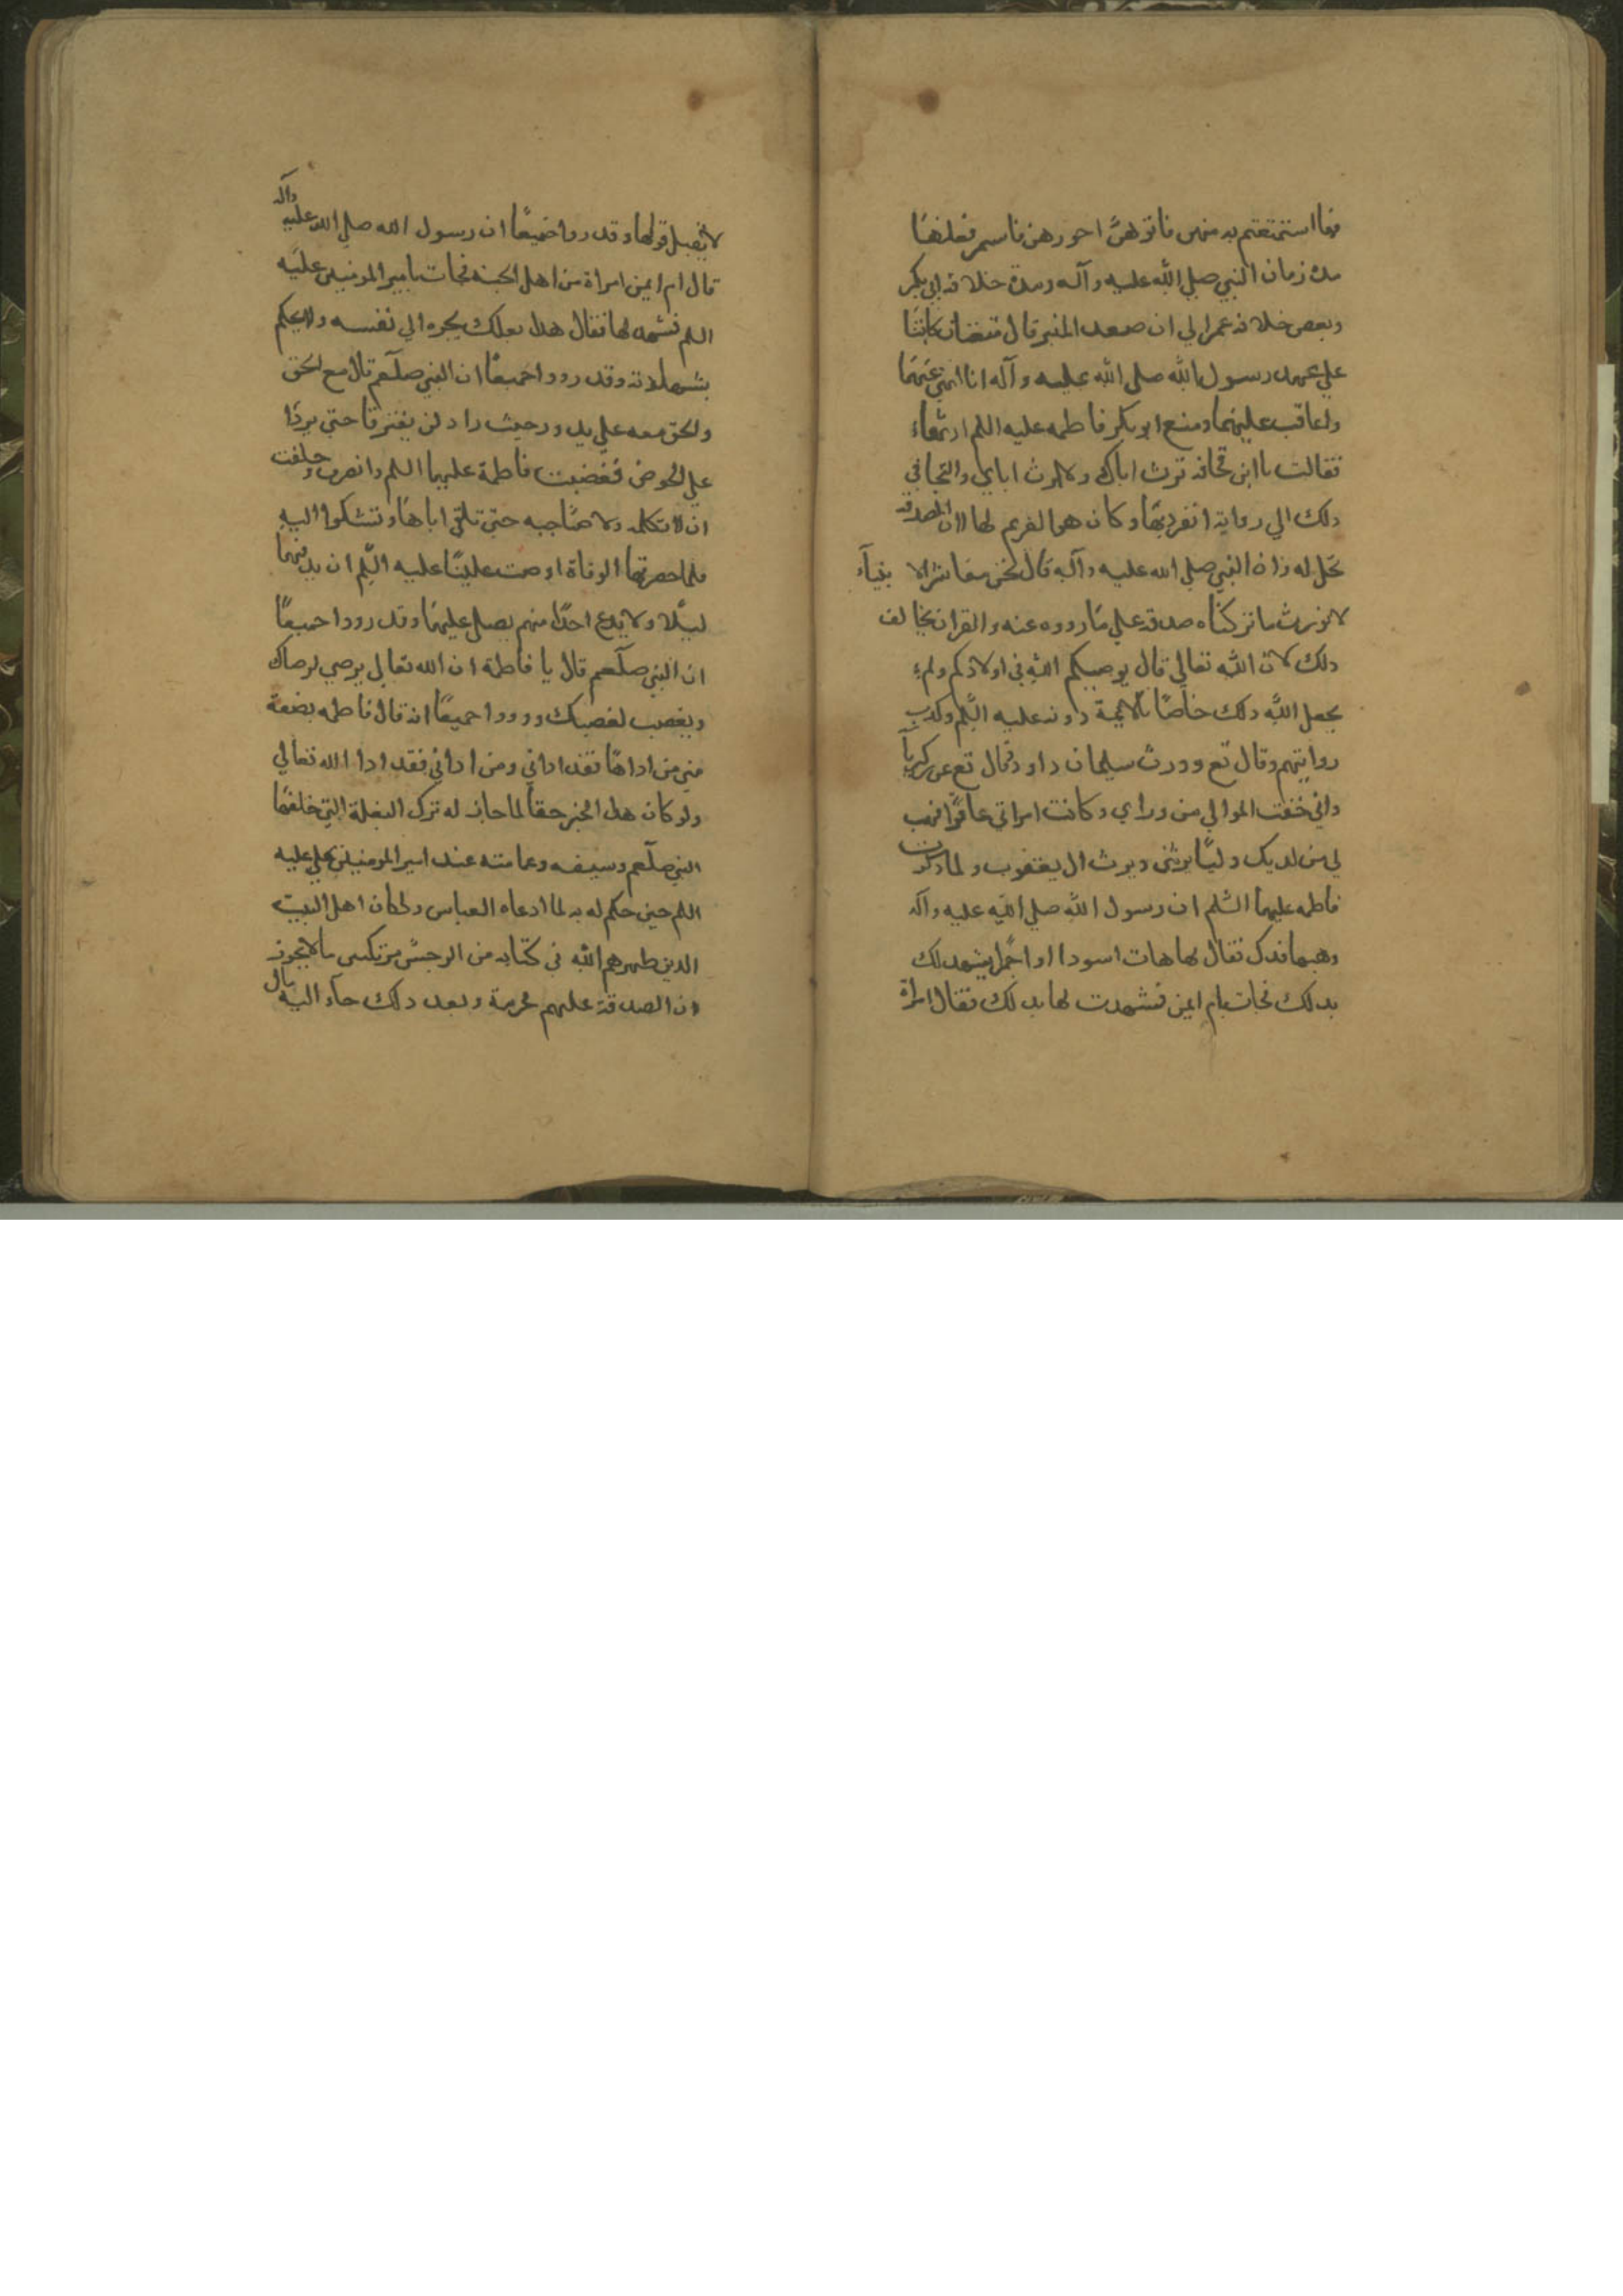 فما استمتعتم به منهن فاتوهن اجورهن فاستمر فعلها
مدة زمان النبي صلي الله عليه وآله ومدة خلافة ابي بكر
وبعض خلافة عمر الي ان صعد المنبر قال متعتان كانتا
علي عهد رسول الله صلي الله عليه وآله انا انهي عنهما
واعاقب عليهما ومنع ابو بكر فاطمه عليه السلم ارثها
فقالت يا ابن قحافه ترث اباك ولا ارث ابي والتجا في
ذلك الي رواية انفرد بها وكان هو الغريم لها لان الصدقه
تحل له وان النبي صلي الله عليه وآله قال نحن معاشر الانبيآء
لا نورث ما تركناه صدقة علي ما رووه عنه والقران يخالف
ذلك لان الله تعالي قال يوصيكم الله في اولادكم ولم
يجعل الله ذلك خاصا بالامة دونه عليه السلم وكذب
روايتهم وقال تع وورث سليمان داود وقال تع عن زكريآ
واني خفت الموالي من وراي وكانت امراتي عاقرا فهب
لي من لدنك وليا يرثني ويرث ال يعقوب ولما ذكرت
فاطمه عليها السلم ان رسول الله صلي الله عليه وآله
وهبها فدك فقال لها هات اسودا او احمرا يشهد لك
بذلك فجات بام ايمن فشهدت لها بذلك فقال امراة
لا يقبل قولها وقد رووا جميعا ان رسول الله صلي الله عليه وآله
قال ام ايمن امراة من اهل الجنه فجات بامير المومنين عليه
السلم فشهد لها فقال هذا بعلك يجره الي نفسه ولا يحكم
بشهادته وقد رووا جميعا ان النبي صلعم قال مع الحق
والحق معه علي يدور حيث دار لن يفترقا حتي يردا
علي الحوض فغضبت فاطمة عليها السلم وانصرف وحلفت
ان لا تكلمه ولا صاحبه حتي تلقي اباها وتشكوا اليه
فلما حضرتها الوفاة اوصت عليا عليه السلم ان يدفنها
ليلا ولا يدع احدا منهم يصلي عليها وقد رووا جميعا
ان النبي صلعم قال يا فاطمة ان الله تعالي يرضي لرضاك
ويغضب لغضبك ورووا جميعا انه قال فاطمه بضعة
مني من اذاها فقد اذاني ومن اذاني فقد اذا الله تعالي
ولو كان هذا الخبر حقا لما جاز له ترك البغلة التي خلفها
النبي صلعم وسيفه وعمامته عند امير المومنين علي عليه
السلم حين حكم له به لما ادعاه العباس ولكان اهل البيت
الذين طهرهم الله في كتابه من الرجس مرتكبين ما لا يجوز
لان الصدقة عليهم محرمة وبعد ذلك جآء اليه مال